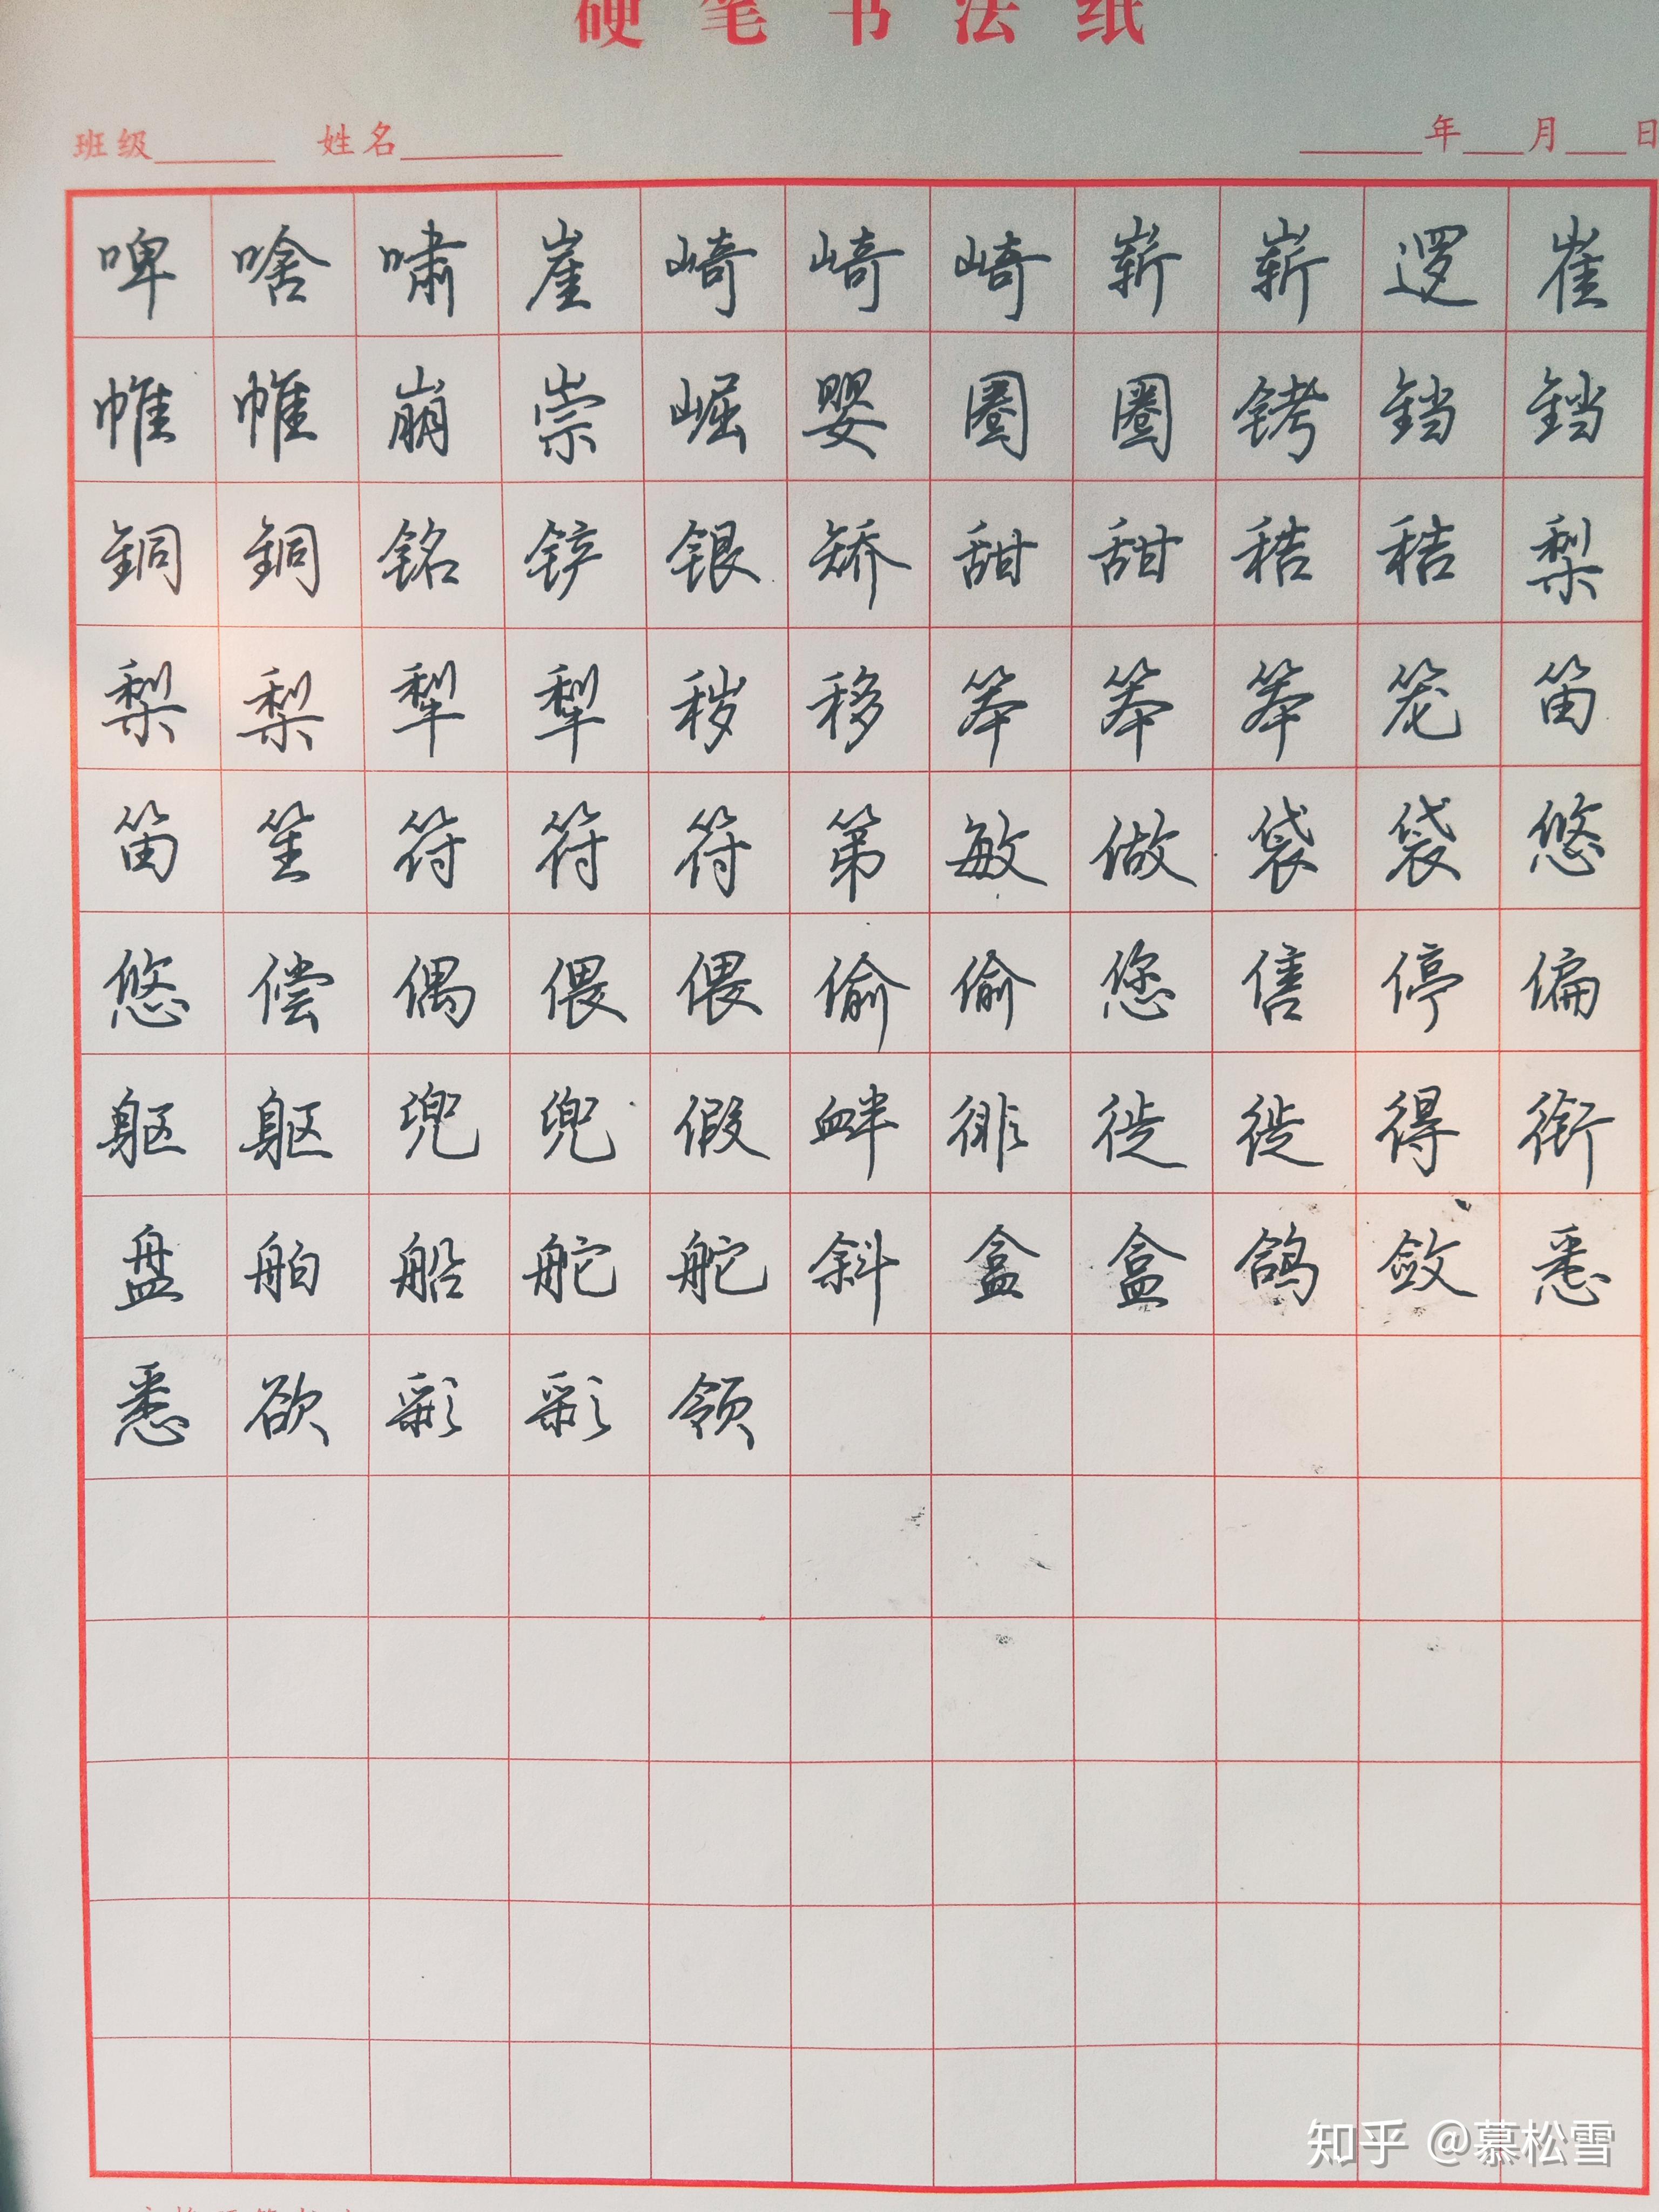 硬笔书法纸
班级 姓名 年 月 日
啤啥啸崖崎崎崎崭崭逻崔
帷帷崩崇崛婴圈圈铐铛铛
銅銅铭铲银矫甜甜秸秸梨
梨梨犁犁秽移笨笨笨笼笛
笛笙符符符第敏做袋袋悠
悠偿偶偎偎偷偷您售停偏
躯躯兜兜假衅徘徙徙得衔
盘舶船舵舵斜盒盒鸽敛悉
悉欲彩彩领
知乎 @慕松雪